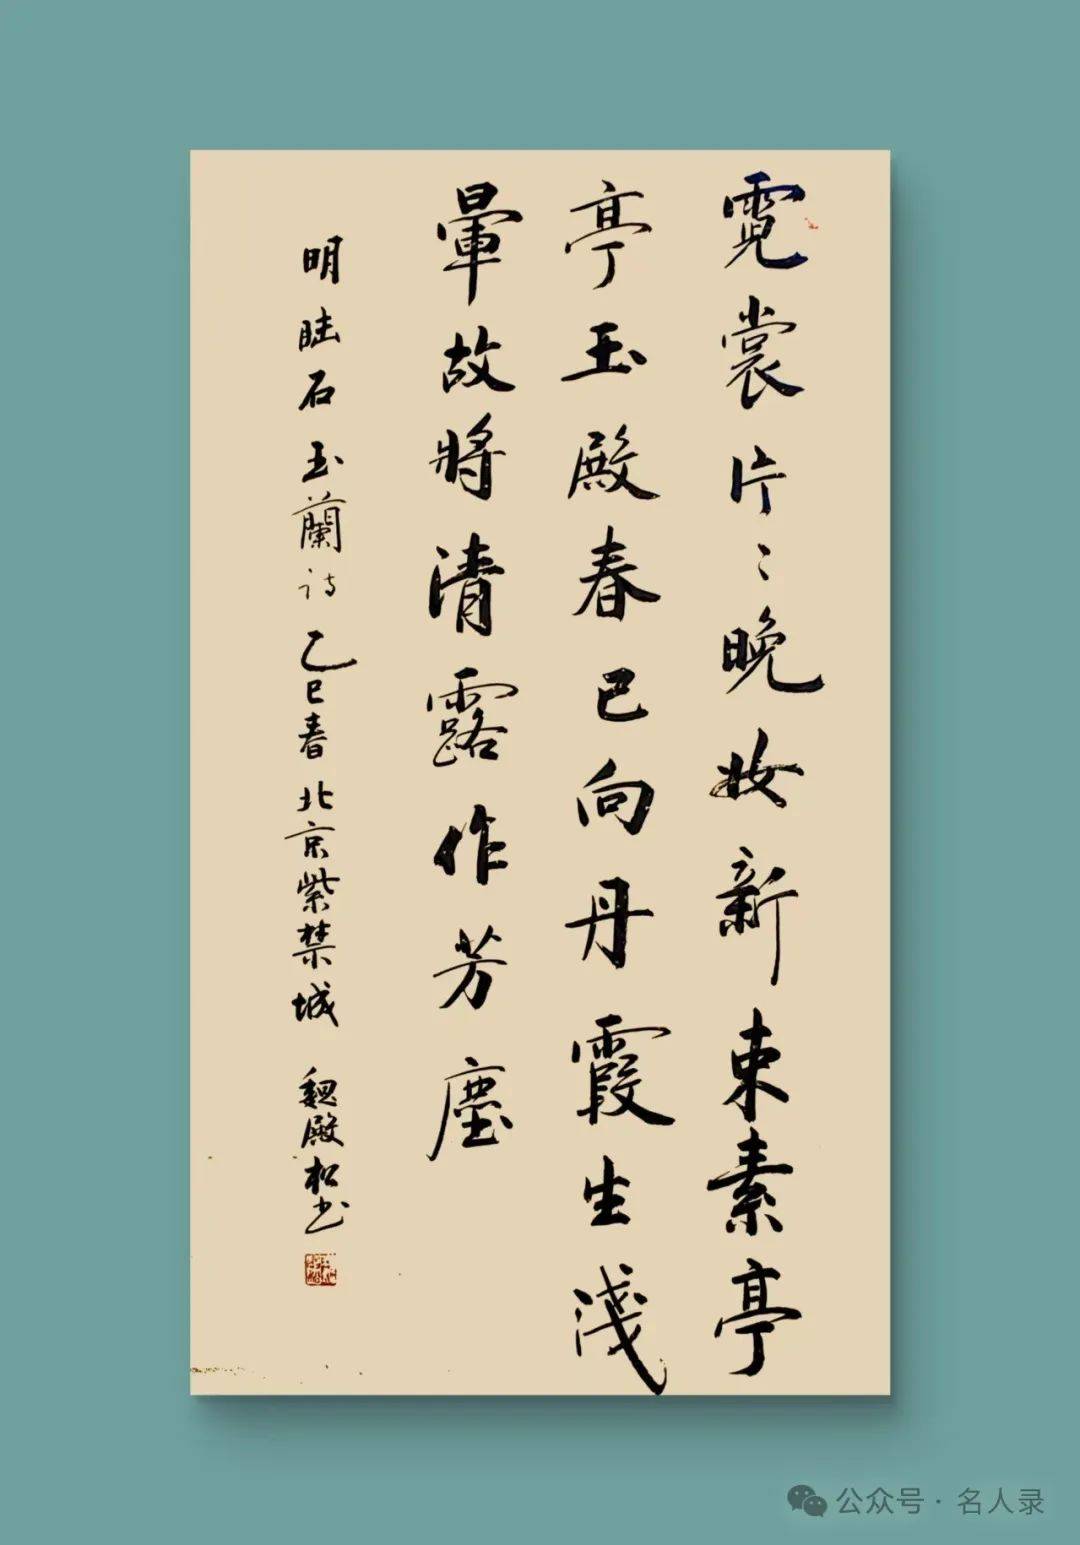 霓裳片〻晚妆新束素亭
亭玉殿春已向丹霞生淺
暈故將清露作芳塵
明睦石玉蘭诗乙巳春北京紫禁城 魏殿松书
公众号·名人录